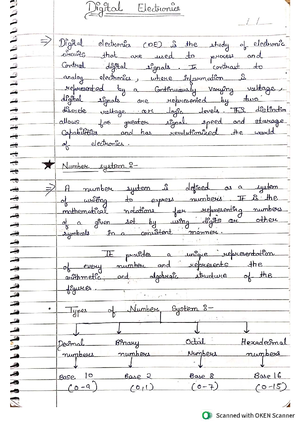 Digital Electronics
Digital electronics (DE) is the study of electronic
circuits that are used to process and
Control digital signals. In contrast to
analog electronics, where information is
represented by a Continuously varying voltage,
digital signals are represented by two
discrete voltage or logic levels. This distinction
allows for greater signal speed and storage
Capabilities and has revolutionized the world
of electronics.
Number system :-
A number system is defined as a system
of writing to express numbers. It is the
mathematical notations for representing numbers
of a given set by using digits or other
symbols in a consistent manner.
It provides a unique representation
of every number and represents the
arithmetic and algebraic structure of the
figures.
Types of Number System :-
Decimal Binary Octal Hexadecimal
numbers numbers Numbers numbers
Base 10 Base 2 Base 8 Base 16
(0-9) (0,1) (0-7) (0-15)
Scanned with OKEN Scanner